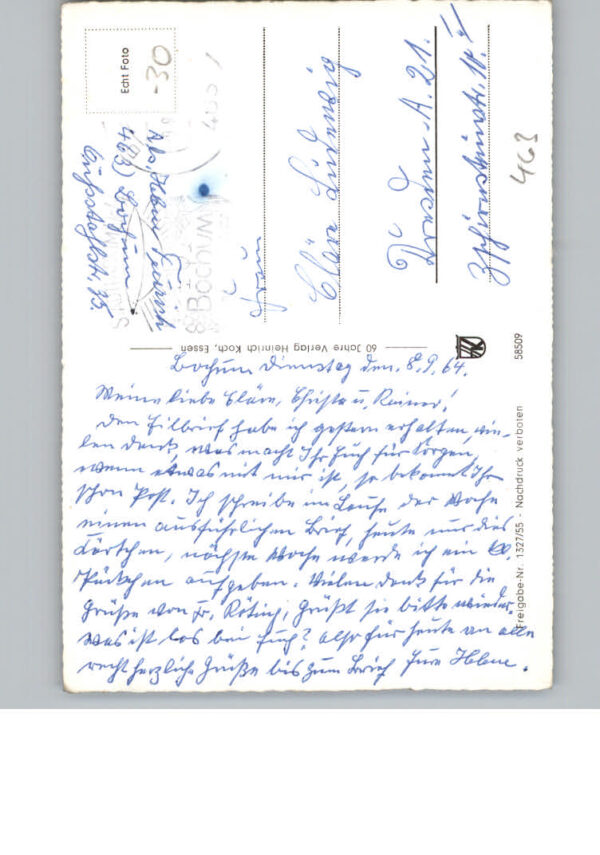 Bochum Dienstag den. 8.9.64.
Meine liebe Cläre, Christa u. Rainer!
Den Eilbrief habe ich gestern erhalten, vie-
len Dank, was macht Ihr Euch für Sorgen,
wenn etwas mit mir ist, so bekommt Ihr
schon Post. Ich schreibe im Laufe der Woche
einen ausführlichen Brief, heute nur dies
Kärtchen, nächste Woche werde ich ein
Päckchen aufgeben. Vielen Dank für die
Grüße von Fr. Grüßt sie bitte wieder.
Was ist los bei Euch? Also für heute an alle
recht herzliche Grüße bis zum Brief Eure
Echt Foto
-30
Abs.
463) Bochum
Gußstahlstr.
BOCHUM
Frau
Cläre Ludewig
Dresden A. 21.
463
60 Jahre Verlag Heinrich Koch, Essen
58509
Freigabe-Nr. 1327/55 - Nachdruck verboten